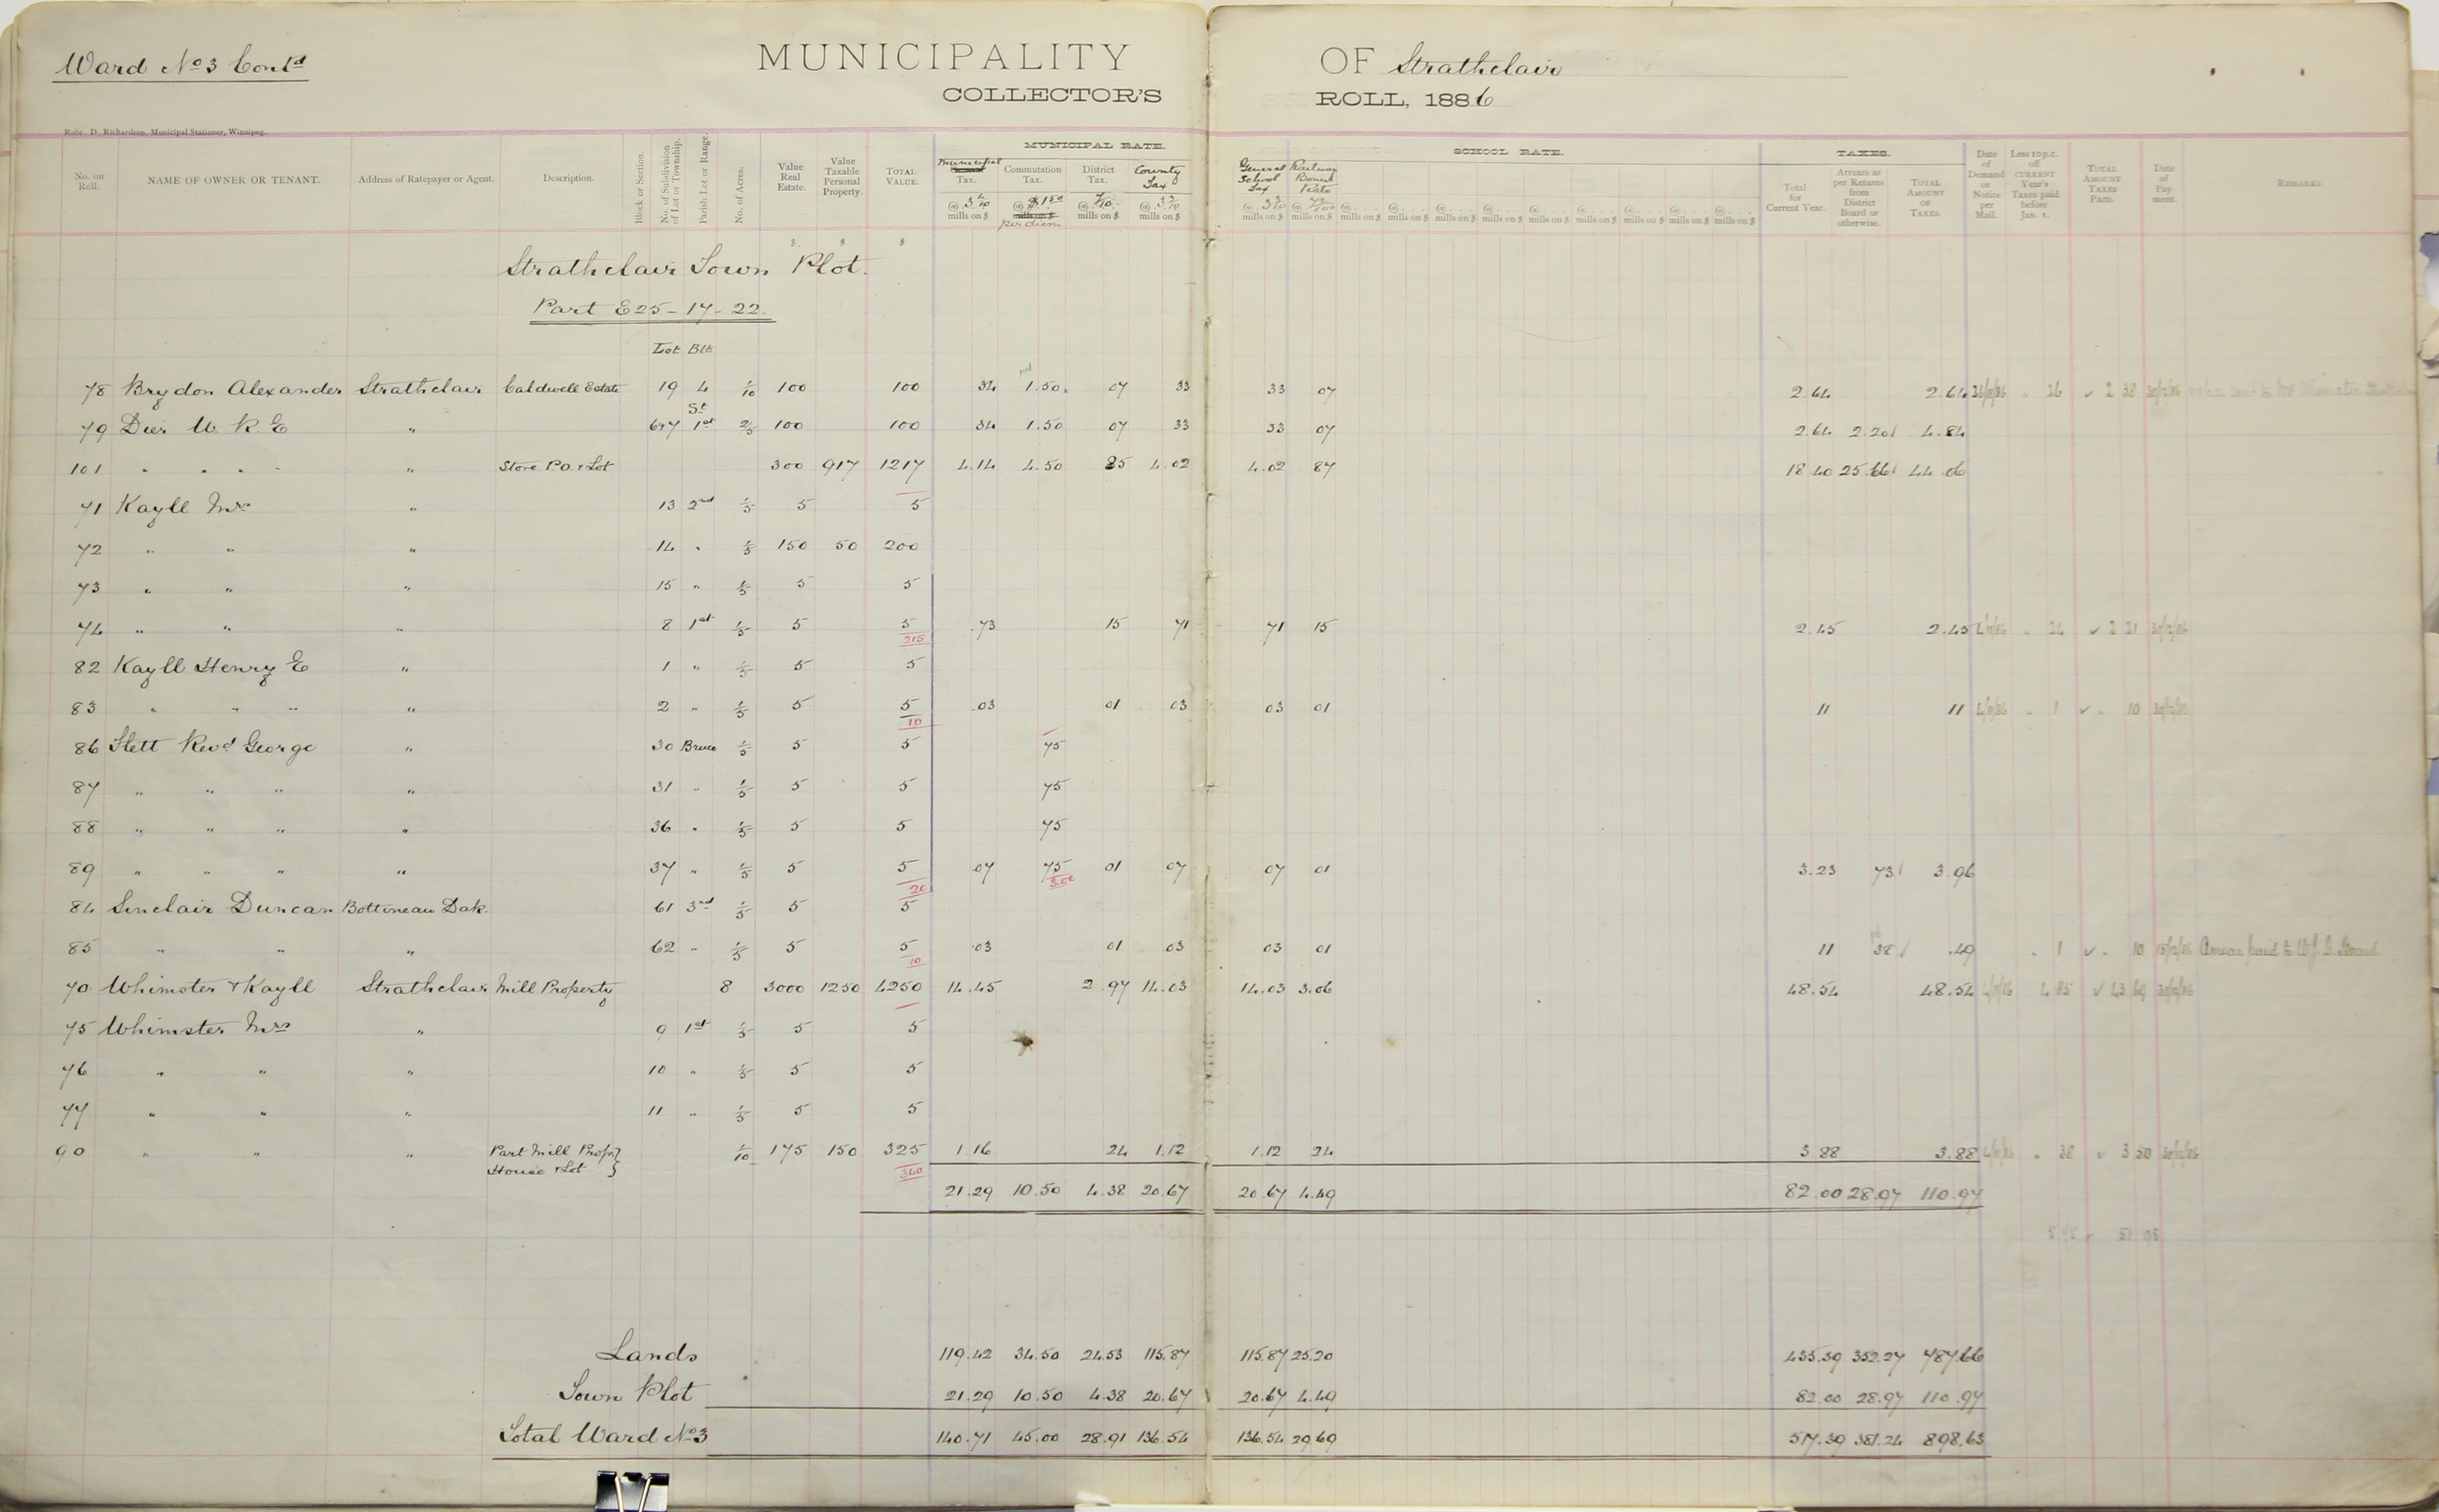 Ward No 3 Contd
MUNICIPALITY OF Strathclair
COLLECTOR'S ROLL, 1886
Robt. D. Richardson, Municipal Stationer, Winnipeg.
MUNICIPAL RATE. SCHOOL RATE. TAXES.
No. on Roll. NAME OF OWNER OR TENANT. Address of Ratepayer or Agent. Description. Block or Section. No. of Subdivision of Lot or Township. Parish Lot or Range. No. of Acres. Value Real Estate. Value Taxable Personal Property. TOTAL VALUE. Municipal Tax. Commutation Tax. District Tax. County Tax General School Tax Railway Bonus Rate Total for Current Year. Arrears as per Returns from District Board or otherwise. TOTAL AMOUNT OF TAXES. Date of Demand or Notice per Mail. Less 10 p.c. off CURRENT Year's Taxes paid before Jan. 1. TOTAL AMOUNT TAXES PAID. Date of Payment. REMARKS.
@ 3 4/10 mills on $ @ $1.50 mills on $ per diem @ 7/10 mills on $ @ 3 3/10 mills on $ @ 3 3/10 mills on $ @ 72/100 mills on $ @ . . . . mills on $ @ . . . . mills on $ @ . . . . mills on $ @ . . . . mills on $ @ . . . . mills on $ @ . . . . mills on $ @ . . . . mills on $ @ . . . . mills on $ @ . . . . mills on $
$ $ $
Strathclair Town Plot.
Part E 25 - 17 - 22.
Lot Blk
78 Brydon Alexander Strathclair Caldwell Estate 19 4 1/10 100 100 34 1.50 07 33 33 07 2.64 2.64 26 2 38
St
79 Dier W. R. E " 6+7 1st 2/5 100 100 34 1.50 07 33 33 07 2.64 2.20 4.84
101 " " " " " Store P.O. + Lot 300 917 1217 4.14 4.50 85 4.02 4.02 87 18.40 25.66 44.06
71 Kayll Mrs " 13 2nd 1/5 5 5
72 " " " 14 " 1/5 150 50 200
73 " " " 15 " 1/5 5 5
74 " " " 8 1st 1/5 5 5 .73 15 71 71 15 2.45 2.45 24 2 21
215
82 Kayll Henry E " 1 " 1/5 5 5
83 " " " " 2 " 1/5 5 5 .03 01 03 03 01 11 11 1 10
10
86 Flett Revd George " 30 Bruce 1/5 5 5 75
87 " " " " 31 " 1/5 5 5 75
88 " " " " 36 " 1/5 5 5 75
89 " " " " 37 " 1/5 5 5 07 75 01 07 07 01 3.23 73 3.96
20 3.00
84 Sinclair Duncan Bottineau Dak. 61 3rd 1/5 5 5
85 " " " 62 " 1/5 5 5 .03 01 03 03 01 11 38 .49 1 10 Arrears paid to W. J. D. Board
10
70 Whimster + Kayll Strathclair Mill Property 8 3000 1250 4250 14.45 2.97 14.03 14.03 3.06 48.54 48.54 4 85 43 69
75 Whimster Mrs " 9 1st 1/5 5 5
76 " " " 10 " 1/5 5 5
77 " " " 11 " 1/5 5 5
90 " " " Part Mill Prop. 1/10 175 150 325 1.16 24 1.12 1.12 24 3.88 3.88 38 3 50
House + Lot
340
21.29 10.50 4.38 20.67 20.67 4.49 82.00 28.97 110.97
Lands 119.42 34.50 24.53 115.87 115.87 25.20 435.39 352.27 787.66
Town Plot 21.29 10.50 4.38 20.67 20.67 4.49 82.00 28.97 110.97
Total Ward No 3 140.71 45.00 28.91 136.54 136.54 29.69 517.39 381.24 898.63